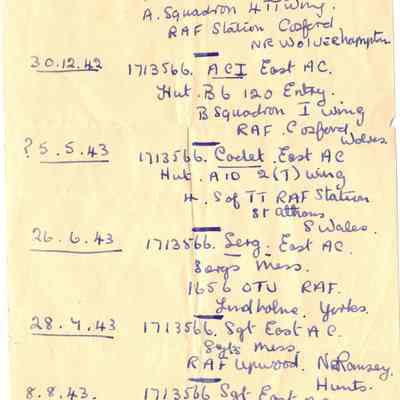 A. Squadron 4 TT Wing.
RAF Station Cosford
NR Wolverhampton
30.12.42 1713566. ACI East AC.
Hut. B6 120 Entry.
B Squadron I Wing
RAF. Cosford
Wolves
? 5.5.43 1713566. Cadet. East AC
Hut. A10 2(T) Wing
4. S of TT RAF Station
St Athans
S Wales.
26.6.43 1713566. Serg. East AC.
Sergs Mess.
1656 OTU RAF.
Lindholme. Yorks.
28.7.43 1713566. Sgt East A C.
Sgts Mess.
RAF Upwood. Nr Ramsey.
Hunts.
8.8.43. 1713566 Sgt East